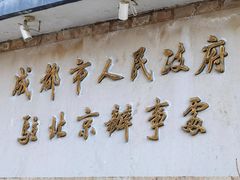 成都市人民政府
驻北京辦事處